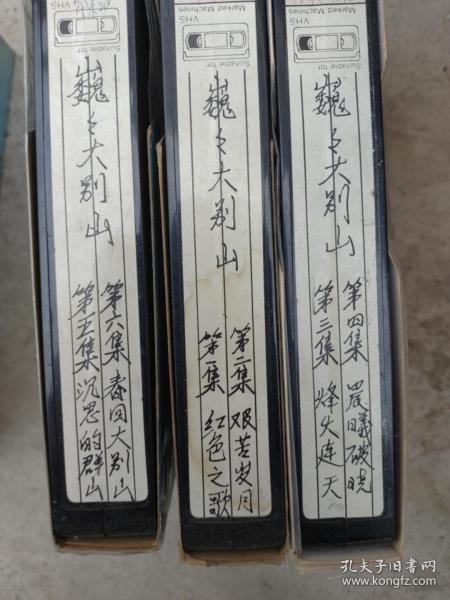 Marked Machines
VHS
Suitable for
巍々大别山
第五集 沉思的群山
第六集 春回大别山
Marked Machines
VHS
Suitable for
巍々大别山
第一集 红色之歌
第二集 艰苦岁月
Marked Machines
VHS
Suitable for
巍々大别山
第三集 烽火连天
第四集 晨曦破晓
孔夫子旧书网
www.kongfz.com